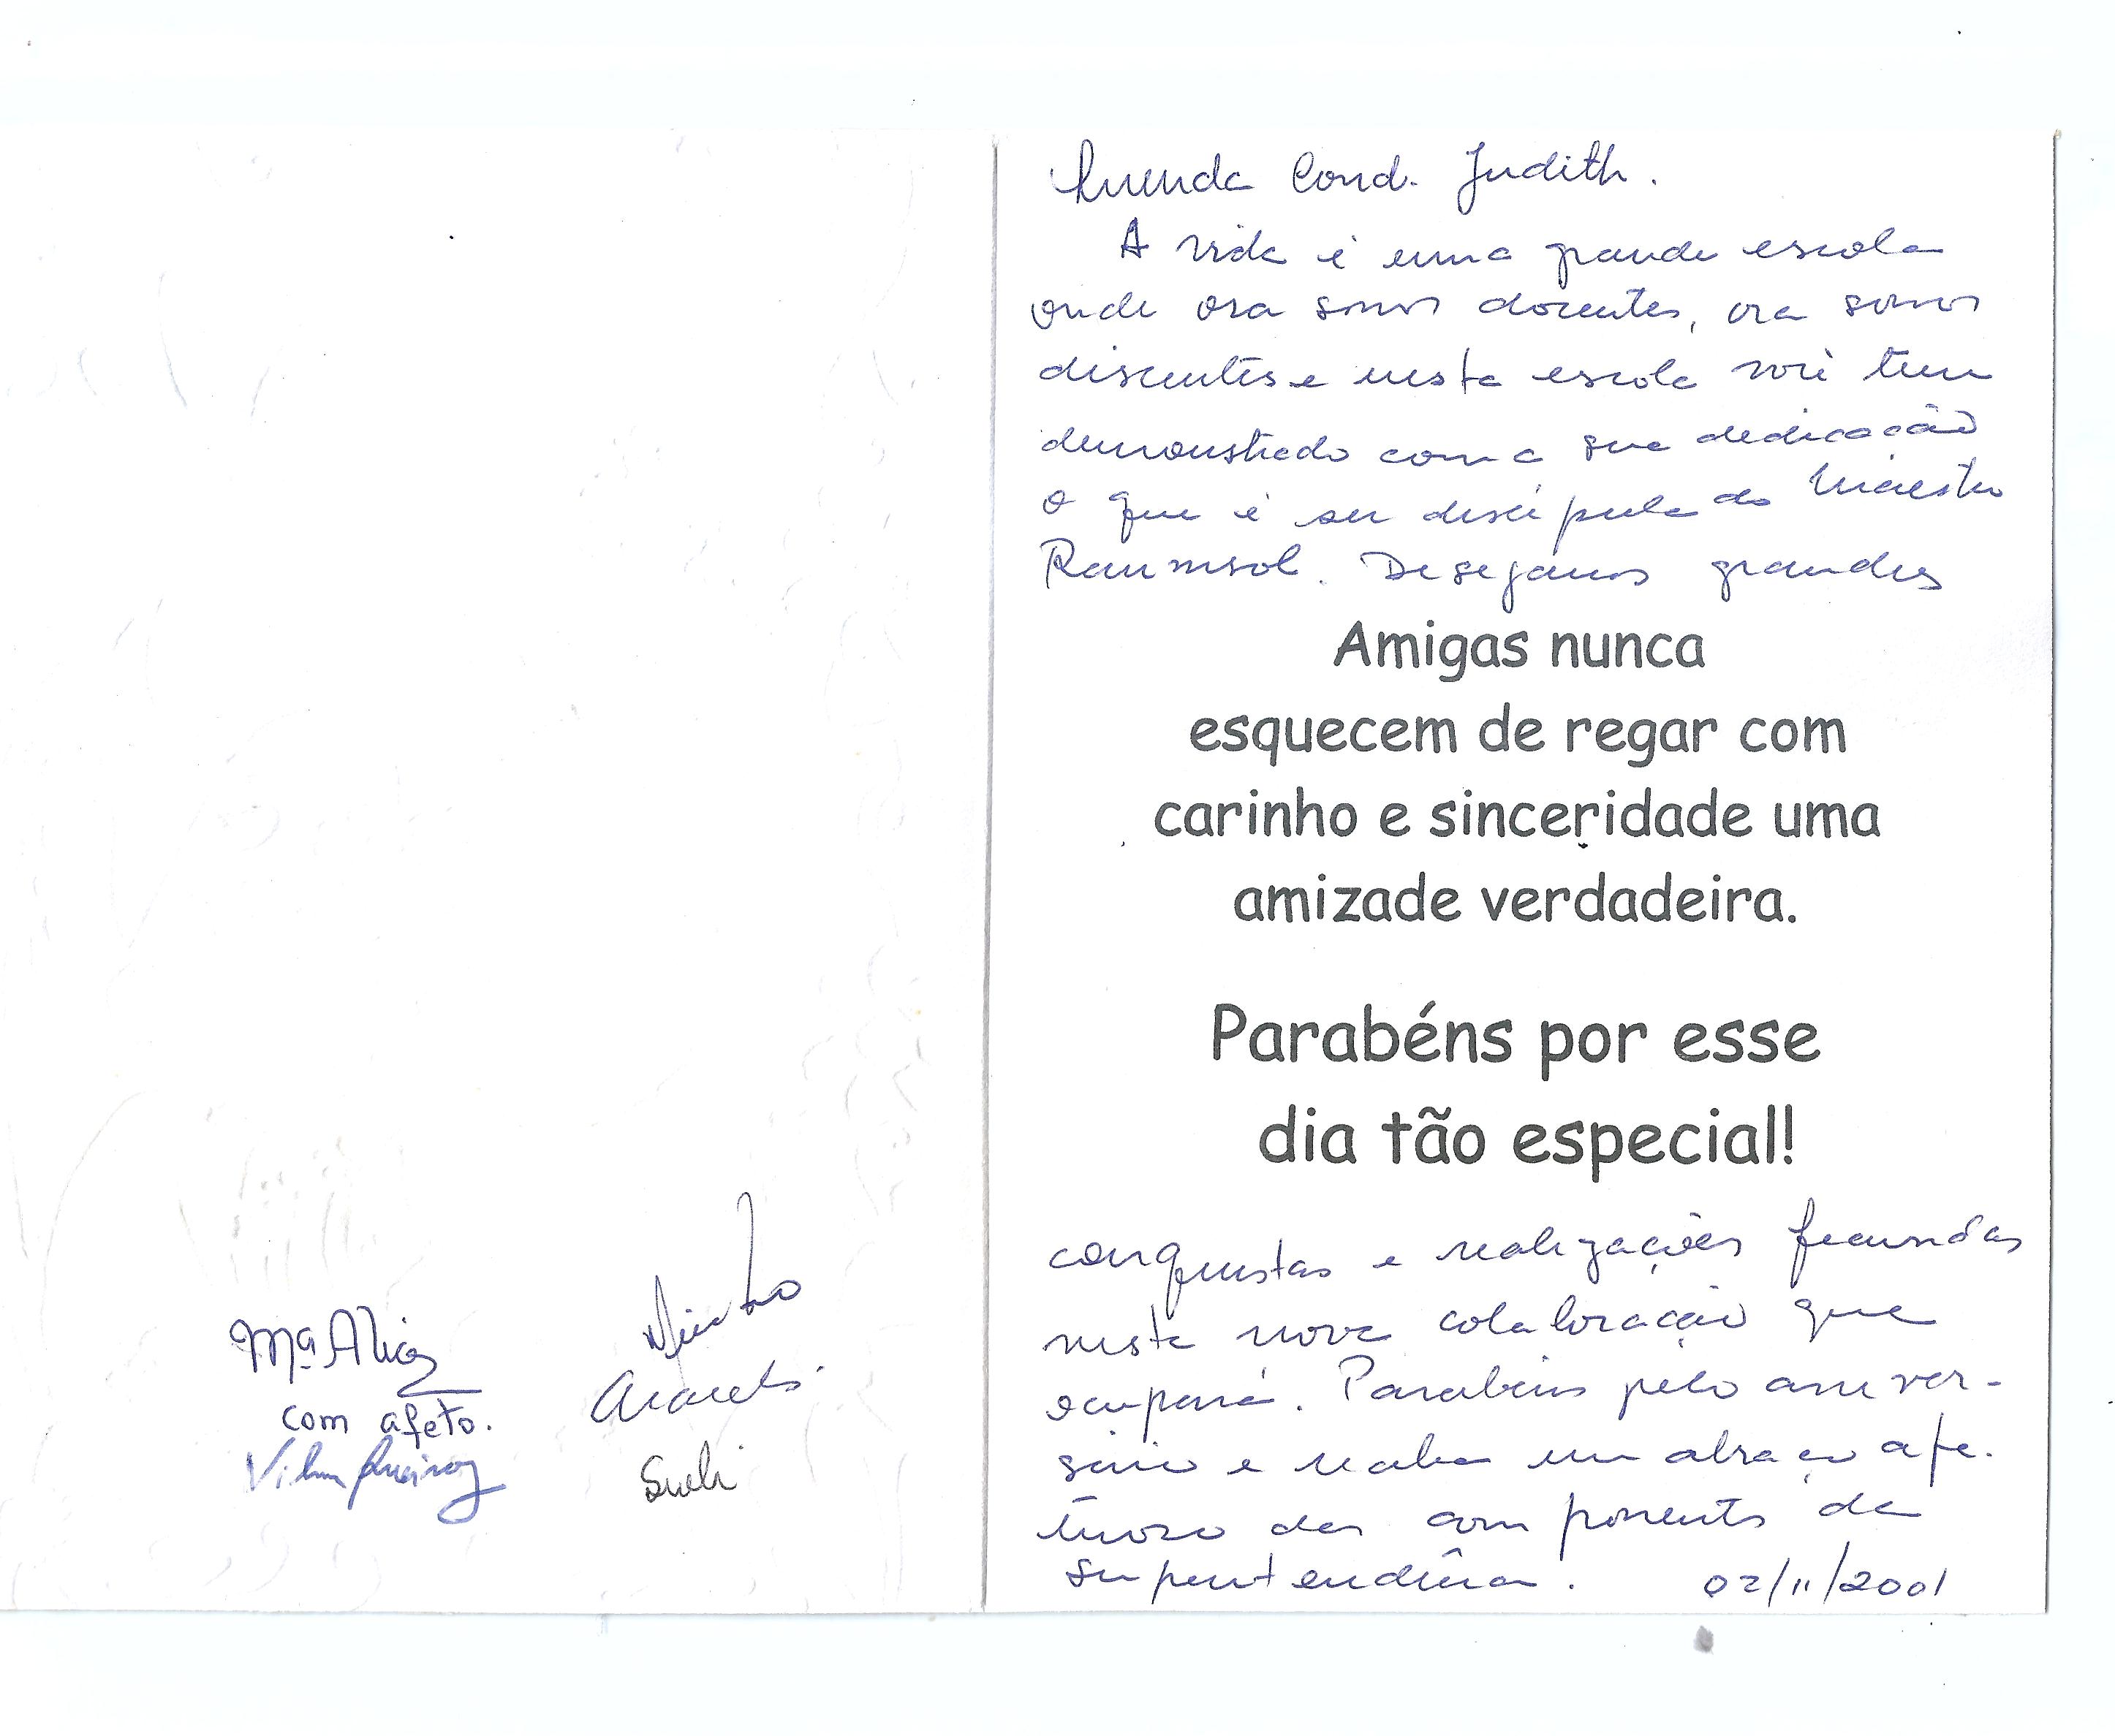 Cond. Judith.
A vida é uma grande escola
onde ora somos docentes, ora somos
discentes e nesta escola você tem
demonstrado com a sua dedicação
o que é ser discípula do Maestro
Raumsol. Desejamos grandes
Amigas nunca
esquecem de regar com
carinho e sinceridade uma
amizade verdadeira.
Parabéns por esse
dia tão especial!
conquistas e realizações fecundas
nesta nova colaboração que
ocupará. Parabéns pelo aniver-
sário e receba um abraço afe-
tuoso das componentes da
02/11/2001
Mª Alice
com afeto.
Vilma Queiroz
Aracelis
Sueli